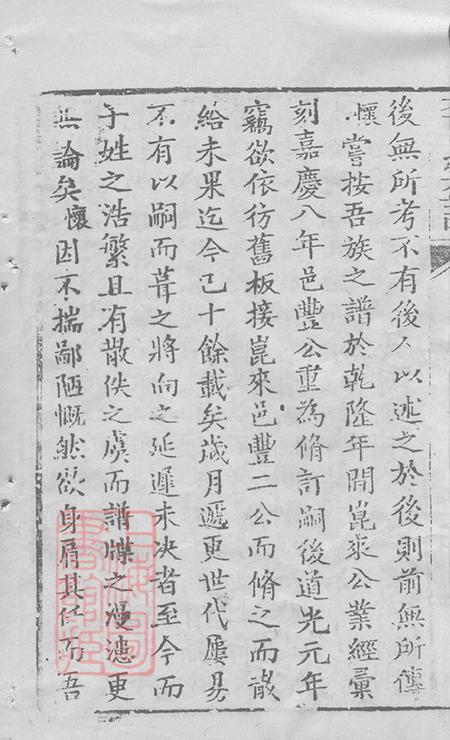 後無所考不有後人以述之於後則前無所傳
懷嘗按吾族之譜於乾隆年間崑來公業經彙
刻嘉慶八年邑豐公重為脩訂嗣後道光元年
竊欲依彷舊板接崑來邑豐二公而脩之而歲
給未果迄今已十餘載矣歲月遞更世代屢易
不有以嗣而葺之將向之延遲未決者至今而
子姓之浩繁且有散佚之虞而譜牒之漫漶更
無論矣懷因不揣鄙陋慨然欲身肩其任而吾